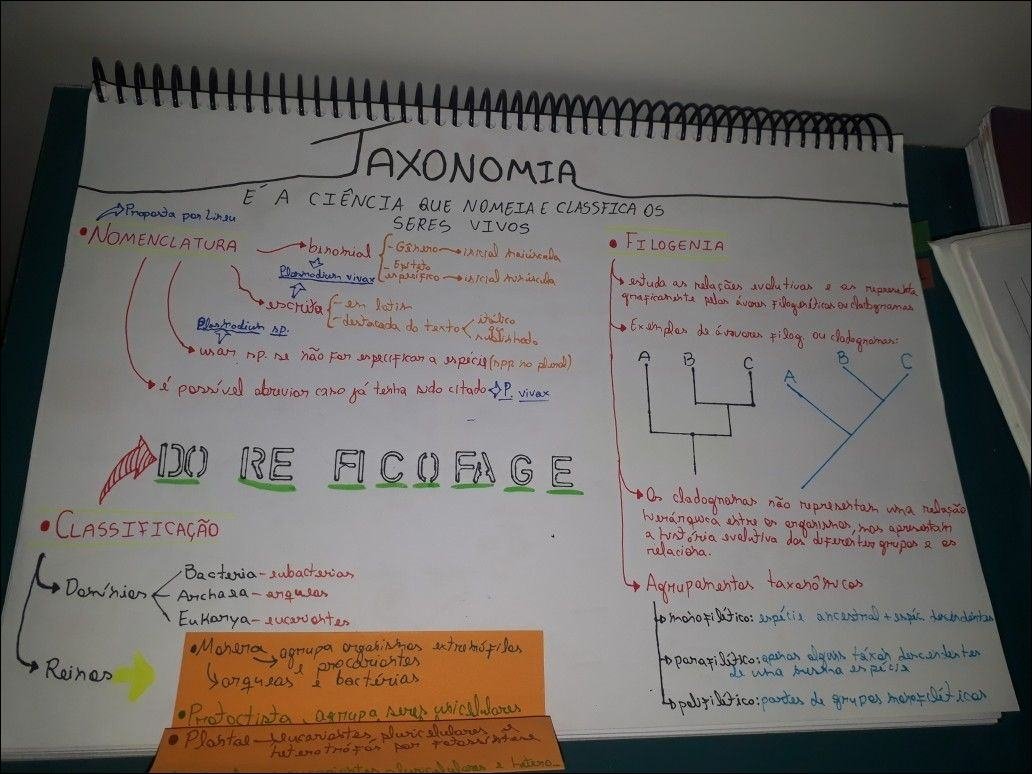 TAXONOMIA
É A CIÊNCIA QUE NOMEIA E CLASSFICA OS
SERES VIVOS
Proposta por Lineu
• NOMENCLATURA
binomial
- Gênero → inicial maiúscula
- Epíteto
específico → inicial minúscula
Plasmodium vivax
escrita
- em latim
- destacada do texto
itálico
sublinhado
Plasmodium sp.
usar sp. se não for especificar a espécie (spp. no plural)
é possível abreviar caso já tenha sido citado
P. vivax
DO RE FICOFAGE
• CLASSIFICAÇÃO
Domínios
Bacteria - eubacterias
Archaea - arqueas
Eukarya - eucariontes
Reinos
• Monera → agrupa organismos extremófilos
e procariontes
arqueas e bactérias
• Protoctista, agrupa seres unicelulares
• Plantae - eucariontes, pluricelulares e
heterotrófos por fotossíntese
pluricelulares e hetero-
• FILOGENIA
estuda as relações evolutivas e as representa
graficamente pelas árvores filogenéticas ou cladogramas
Exemplos de árvores filog. ou cladogramas:
A B C
A B C
Os cladogramas não representam uma relação
hierárquica entre os organismos, mas apresentam
a história evolutiva dos diferentes grupos e os
relaciona.
Agrupamentos taxonômicos
monofilético: espécie ancestral + espéc. descendentes
parafilético: apenas alguns táxons descendentes
de uma mesma espécie
polifilético: partes de grupos monofiléticos